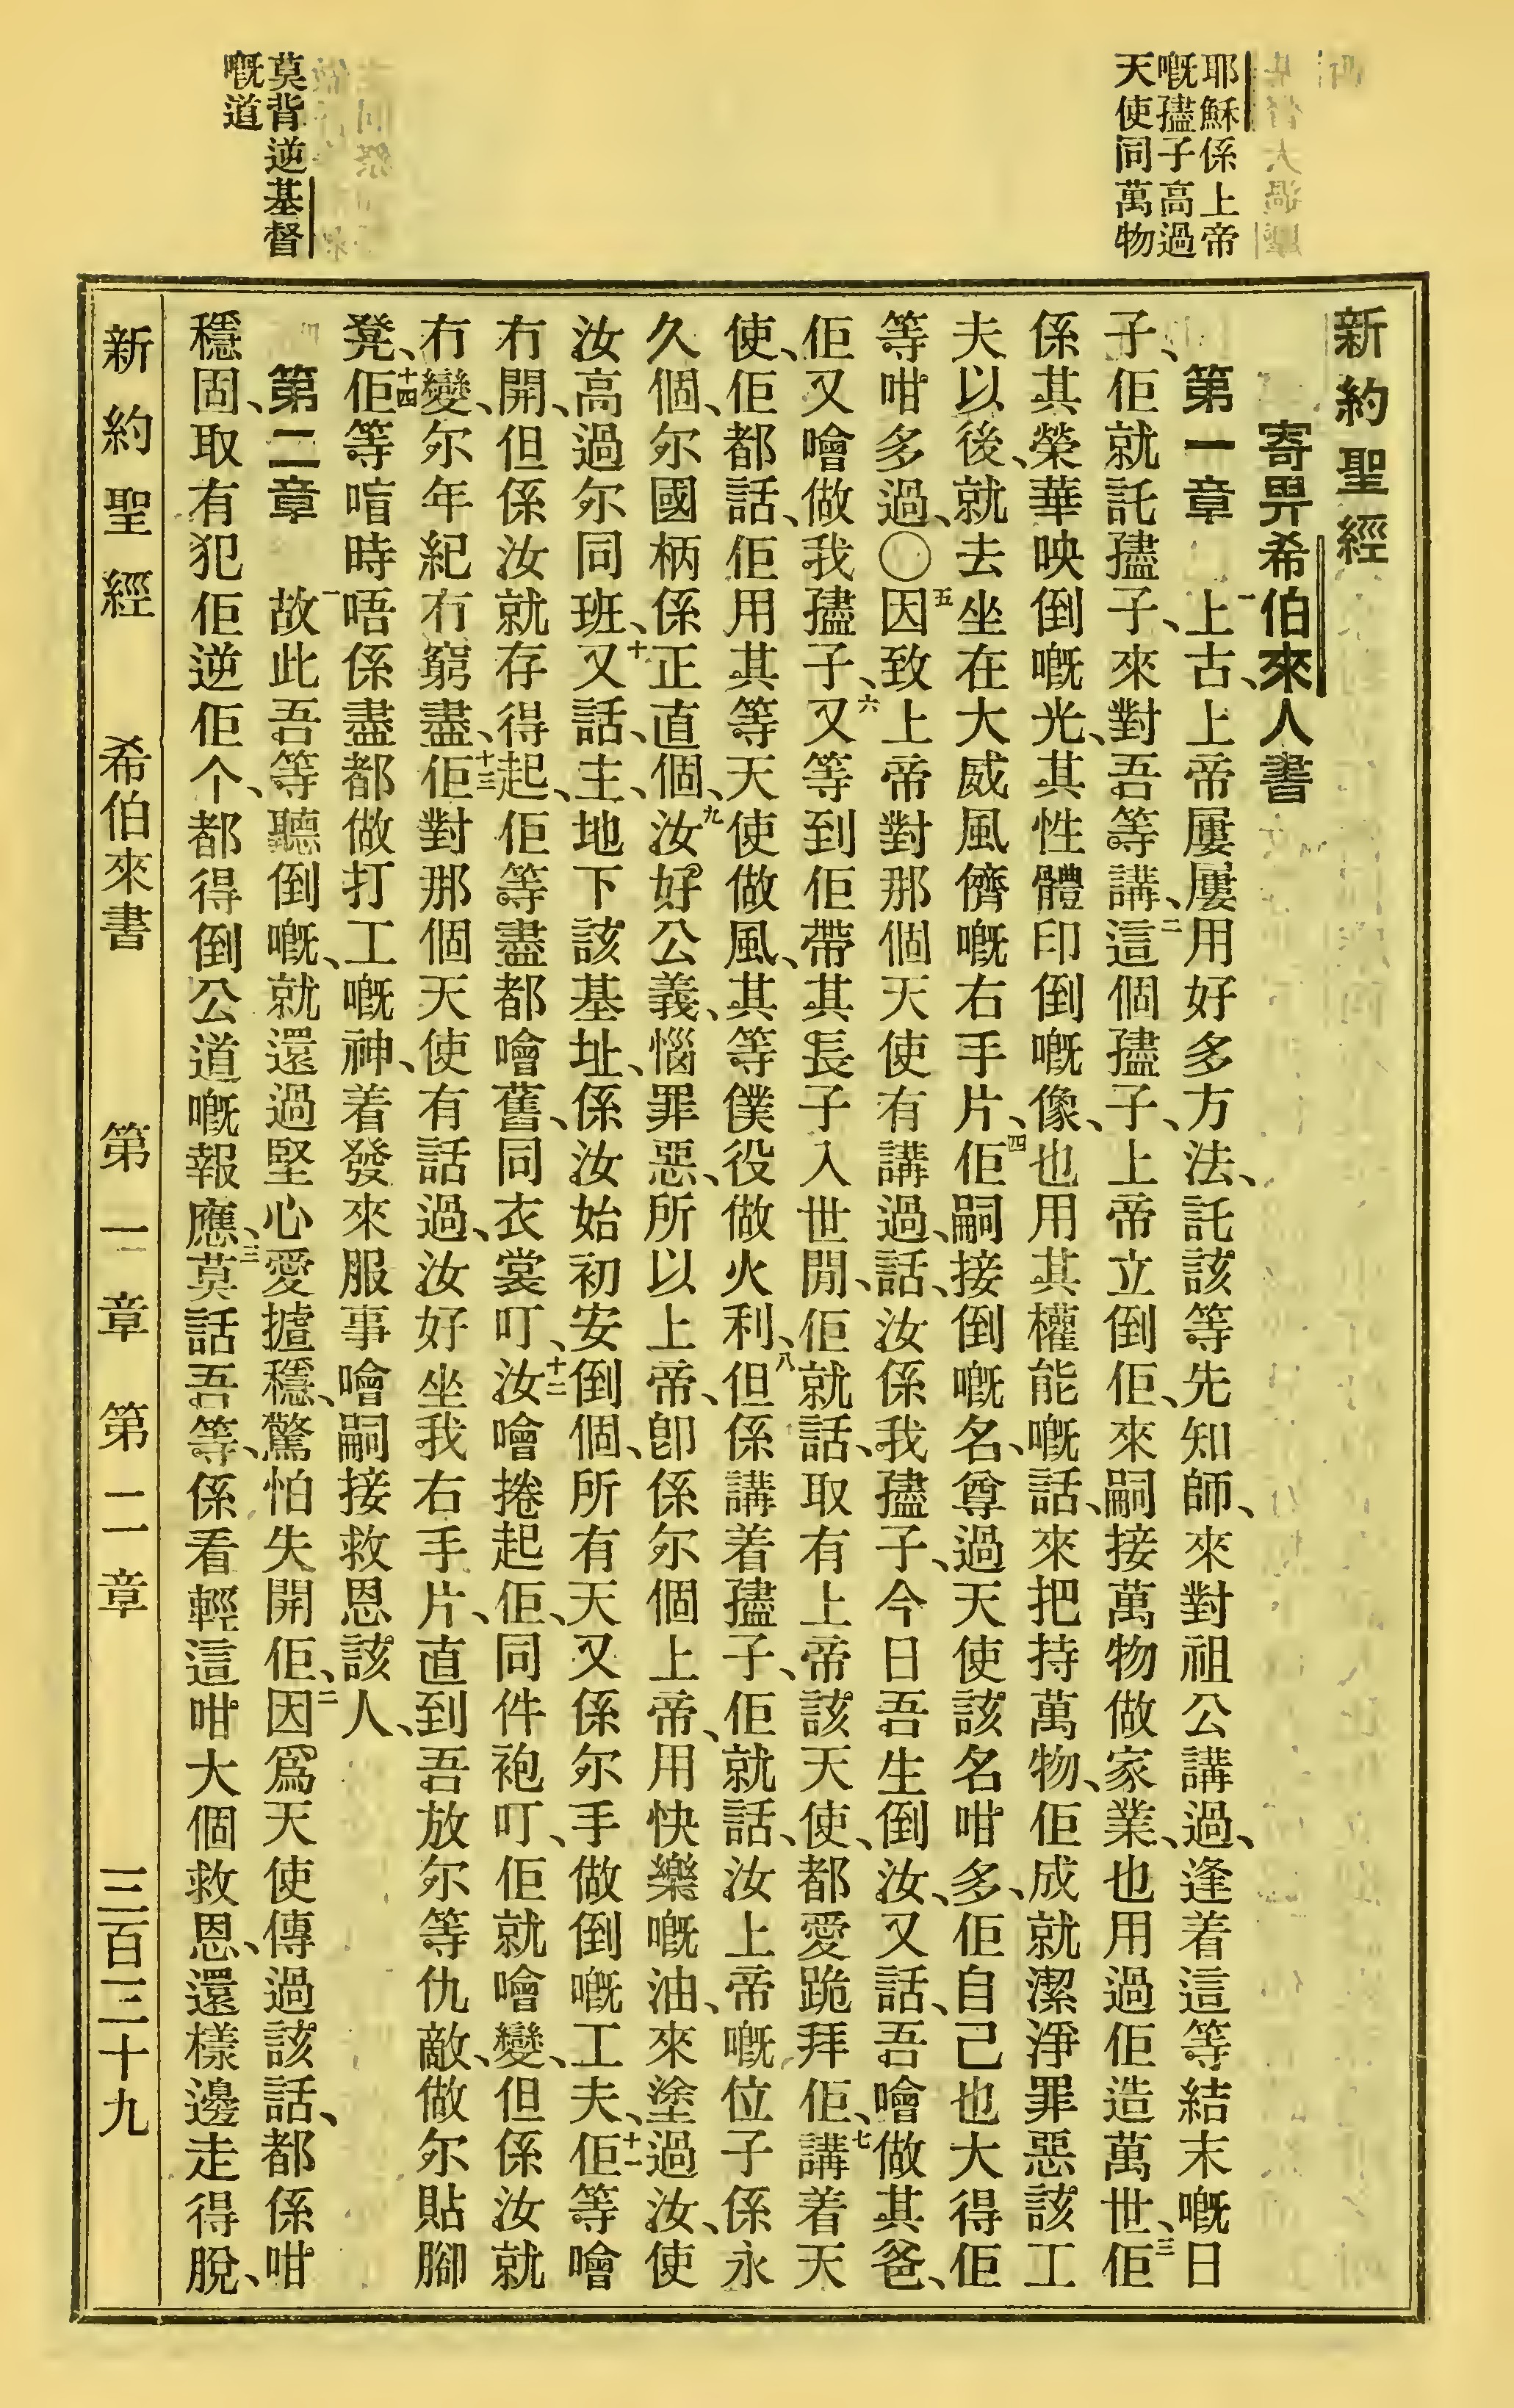 耶穌係上帝
嘅孻子高過
天使同萬物
莫背逆基督
嘅道
新約聖經
寄畀希伯來人書
第一章 一上古、上帝屢屢用好多方法、託該等先知師、來對祖公講過、逢着這等結末嘅日
子、佢就託孻子、來對吾等講、二這個孻子、上帝立倒佢、來嗣接萬物做家業、也用過佢造萬世、三佢
係其榮華映倒嘅光、其性體印倒嘅像、也用其權能嘅話、來把持萬物、佢成就潔淨罪惡該工
夫以後、就去坐在大威風儕嘅右手片、四佢嗣接倒嘅名、尊過天使該名咁多、佢自己也大得佢
等咁多過、〇五因致上帝對那個天使有講過、話、汝係我孻子、今日吾生倒汝、又話、吾噲做其爸、
佢又噲做我孻子、六又等到佢帶其長子入世閒、佢就話、取有上帝該天使、都愛跪拜佢、七講着天
使、佢都話、佢用其等天使做風、其等僕役做火利、八但係講着孻子、佢就話、汝上帝嘅位子係永
久個、尔國柄係正直個、九汝好公義、惱罪惡、所以上帝、卽係尔個上帝、用快樂嘅油、來塗過汝、使
汝高過尔同班、十又話、主、地下該基址、係汝始初安倒個、所有天又係尔手做倒嘅工夫、十一佢等噲
冇開、但係汝就存得起、佢等盡都噲舊、同衣裳叮、十二汝噲捲起佢、同件袍叮、佢就噲變、但係汝就
冇變、尔年紀冇窮盡、十三佢對那個天使有話過、汝好坐我右手片、直到吾放尔等仇敵、做尔貼腳
凳、十四佢等喧時唔係盡都做打工嘅神、着發來服事噲嗣接救恩該人、
第二章 一故此吾等聽倒嘅、就還過堅心愛摣穩、驚怕失開佢、二因爲天使傳過該話、都係咁
穩固、取有犯佢逆佢个、都得倒公道嘅報應、三莫話吾等、係看輕這咁大個救恩、還樣邊走得脫、
新約聖經 希伯來書 第一章 第二章 三百三十九